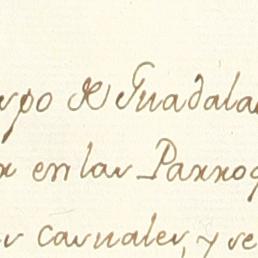 po de Guadala
en las Parroq
carnales, y se